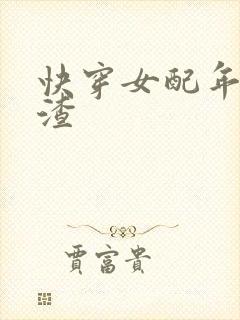 快穿女配年
渣
贾富贵